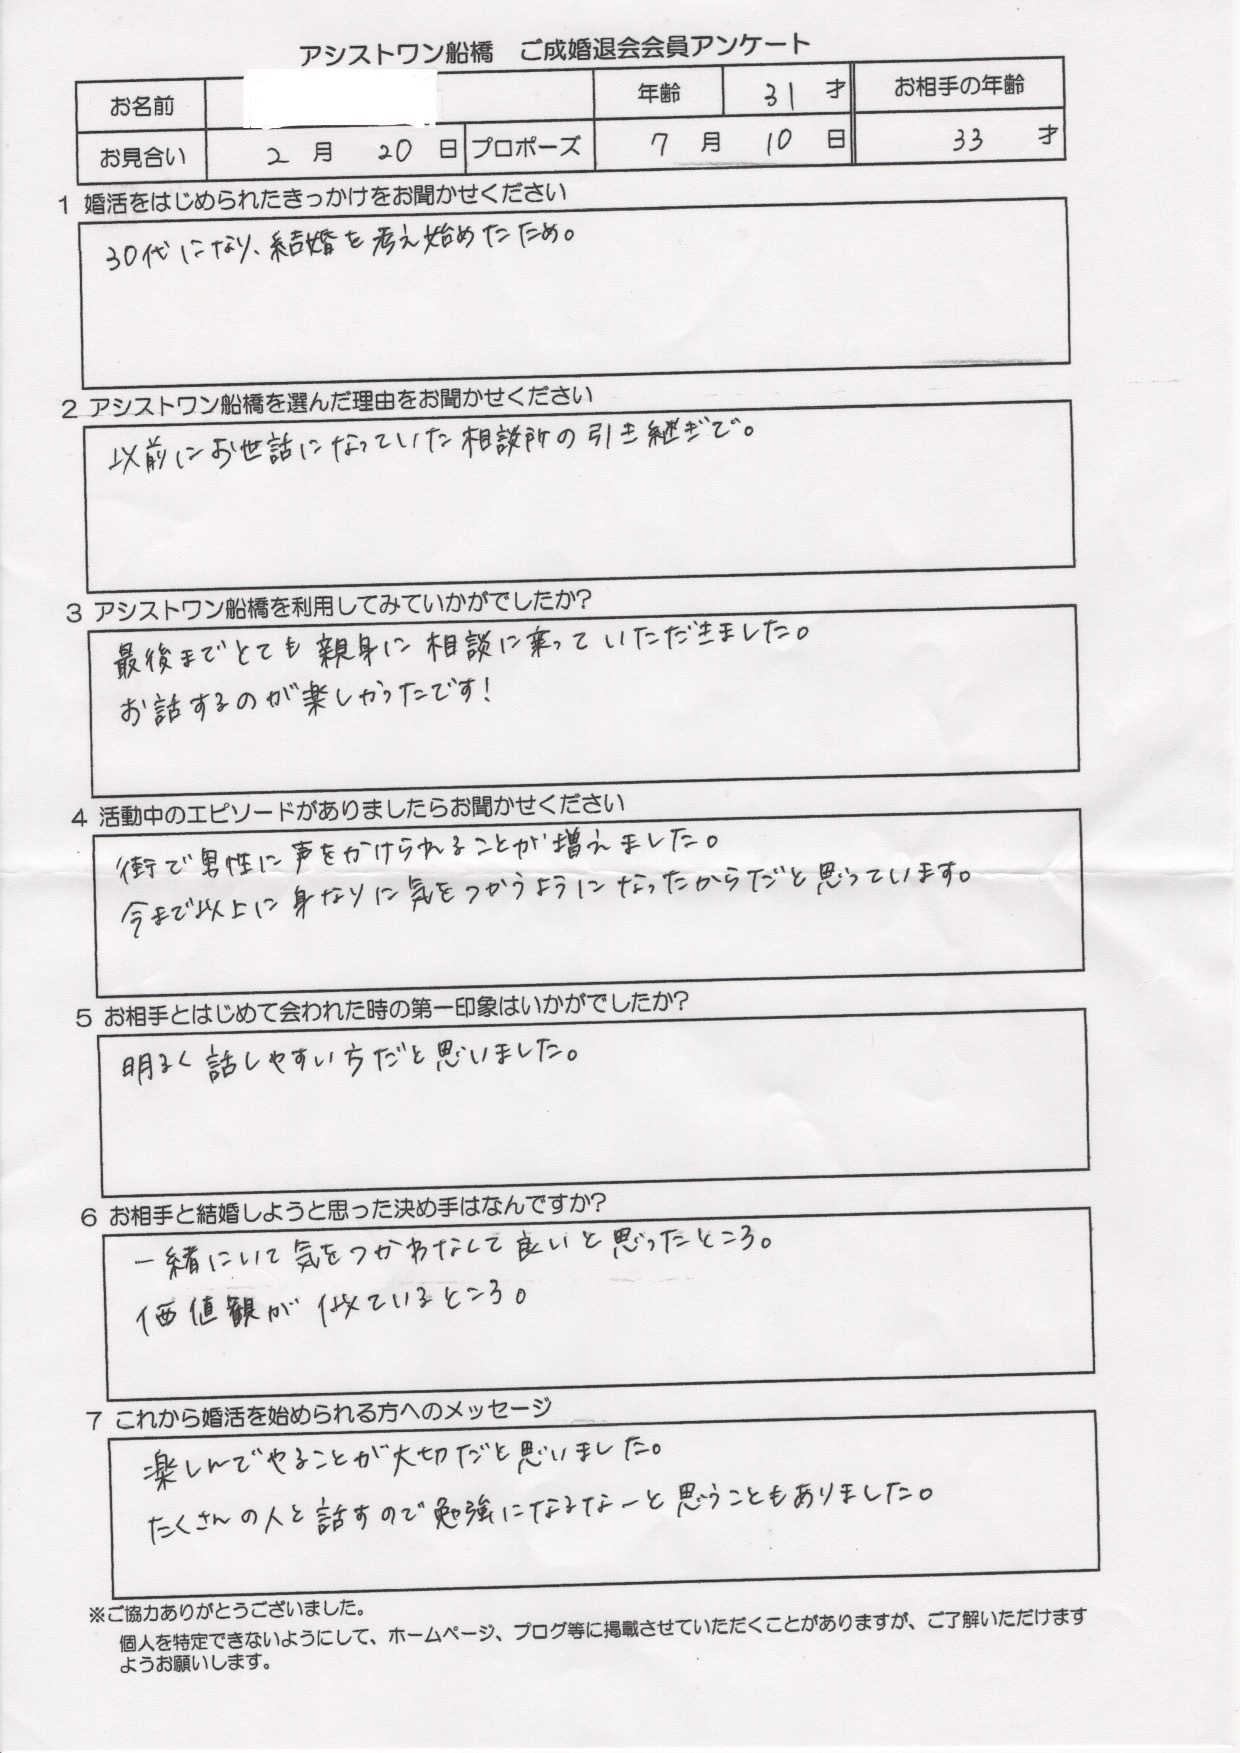 アシストワン船橋　ご成婚退会会員アンケート
お名前 年齢 31 才 お相手の年齢
お見合い 2 月 20 日 プロポーズ 7 月 10 日 33 才
1 婚活をはじめられたきっかけをお聞かせください
30代になり、結婚を考え始めたため。
2 アシストワン船橋を選んだ理由をお聞かせください
以前にお世話になっていた相談所の引き継ぎで。
3 アシストワン船橋を利用してみていかがでしたか?
最後までとても親身に相談に乗っていただきました。
お話するのが楽しかったです!
4 活動中のエピソードがありましたらお聞かせください
街で男性に声をかけられることが増えました。
今まで以上に身なりに気をつかうようになったからだと思っています。
5 お相手とはじめて会われた時の第一印象はいかがでしたか?
明るく話しやすい方だと思いました。
6 お相手と結婚しようと思った決め手はなんですか?
一緒にいて気をつかわなくて良いと思ったところ。
価値観が似ているところ。
7 これから婚活を始められる方へのメッセージ
楽しんでやることが大切だと思いました。
たくさんの人と話すので勉強になるなーと思うこともありました。
※ご協力ありがとうございました。
個人を特定できないようにして、ホームページ、ブログ等に掲載させていただくことがありますが、ご了解いただけます
ようお願いします。